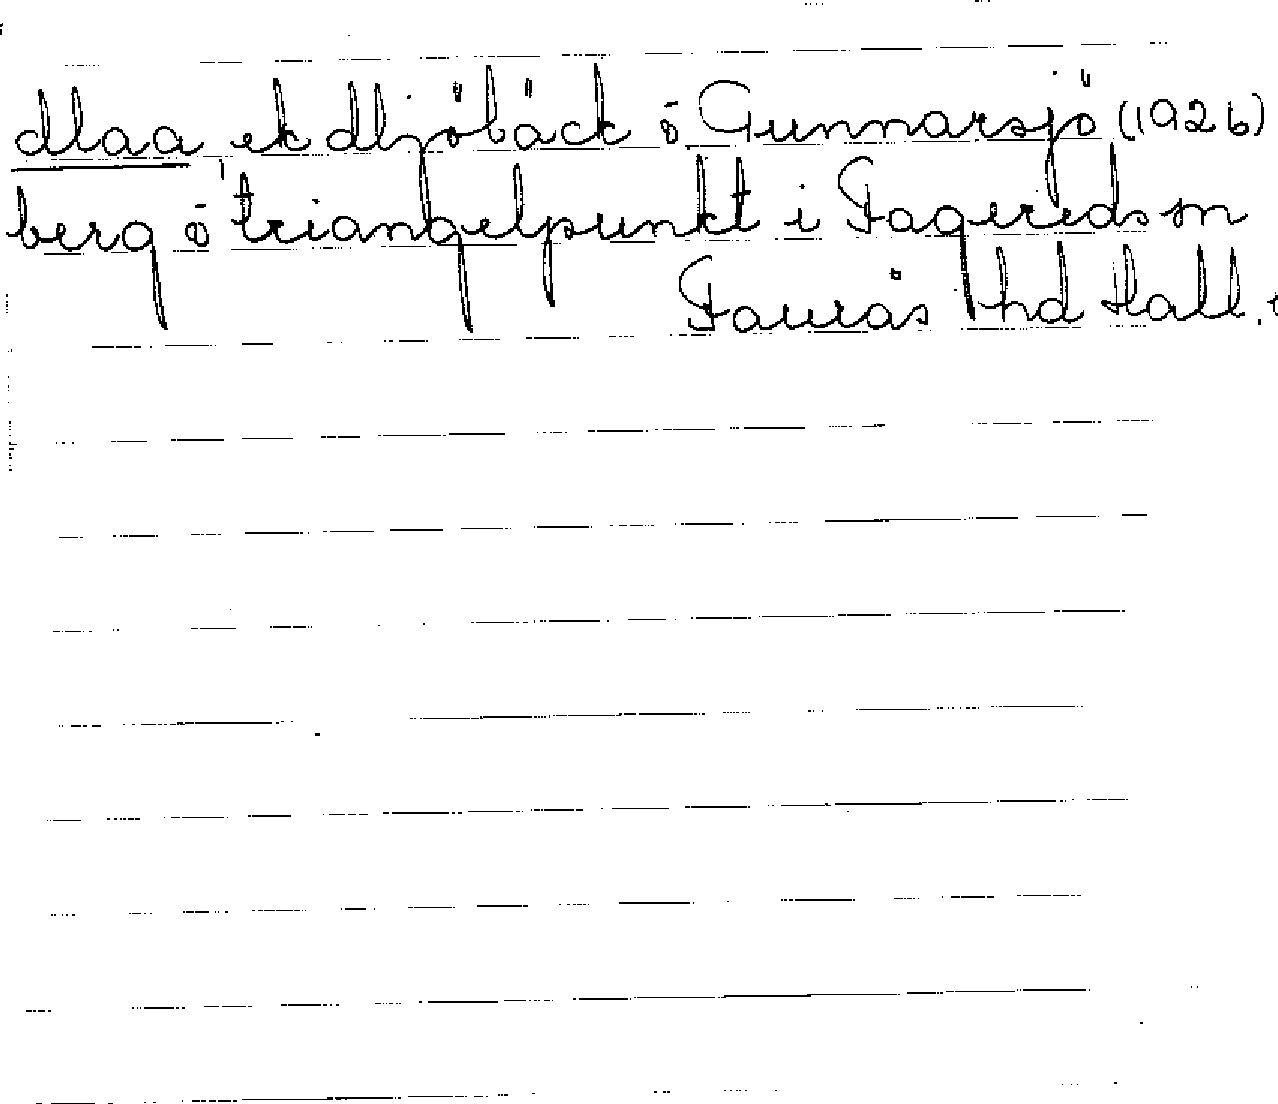 dlaa, ek dljöbäck ö Gunnarsjö (1926)
berg ö triangelpunkt i Fagereds sn
Faurås hd Hall.